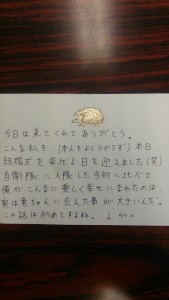 今日は来てくれてありがとう。
こんな私も、(本人もよく分からず)本日、
結婚式を挙げる日を迎えました(笑)
自衛隊に入隊した当初に比べて
俺がこんなに楽しく幸せになれたのは、
実は竜ちゃんに会えた事が大きいんだ。
この話は初めてするね。